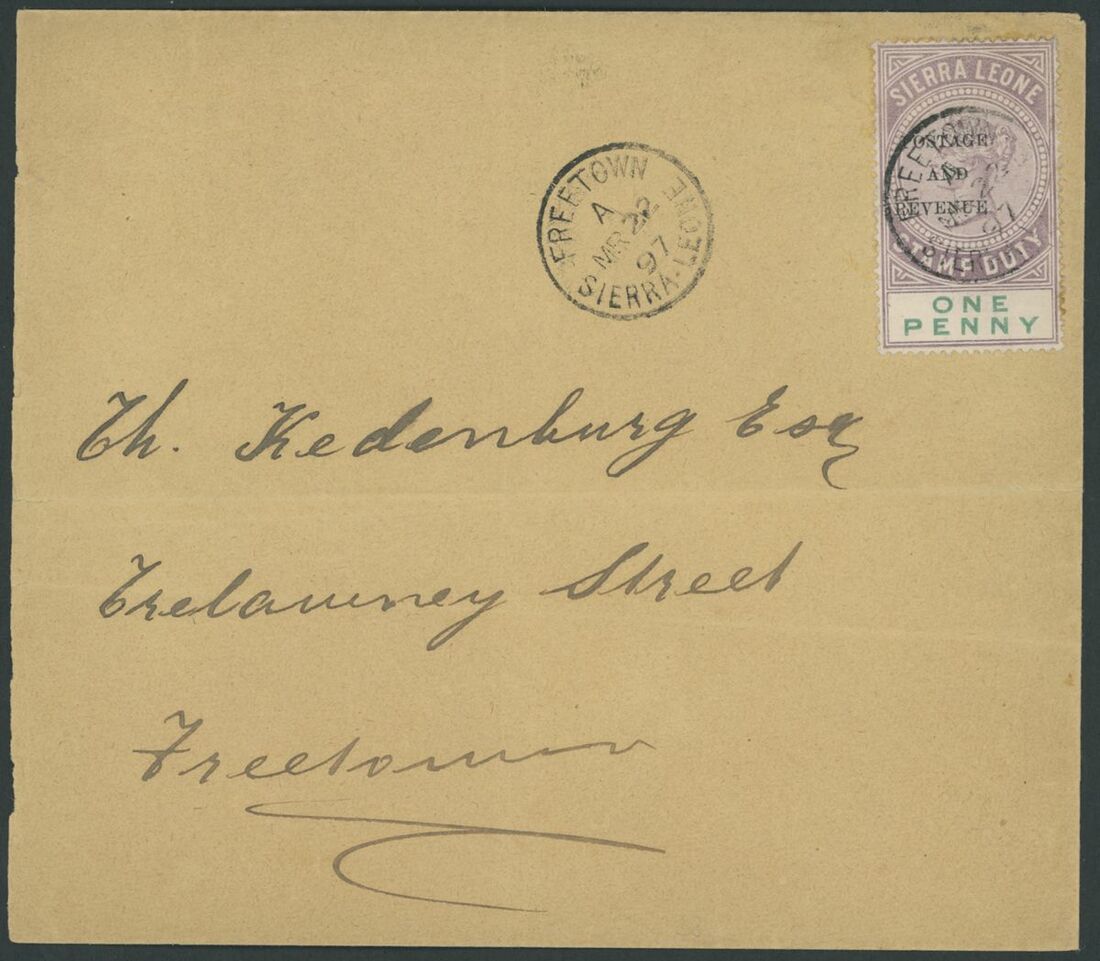 SIERRA LEONE
POSTAGE
AND
REVENUE
STAMP DUTY
ONE
PENNY
FREETOWN
A
MR 22
97
SIERRA-LEONE
FREETOWN
Th. Kedenburg Esq
Trelawney Street
Freetown